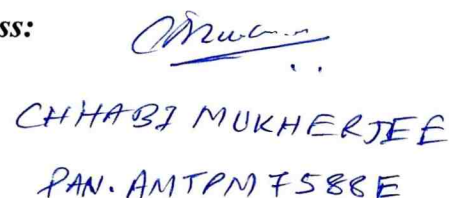 ss:
CHHABI MUKHERJEE
PAN. AMTPM7588E